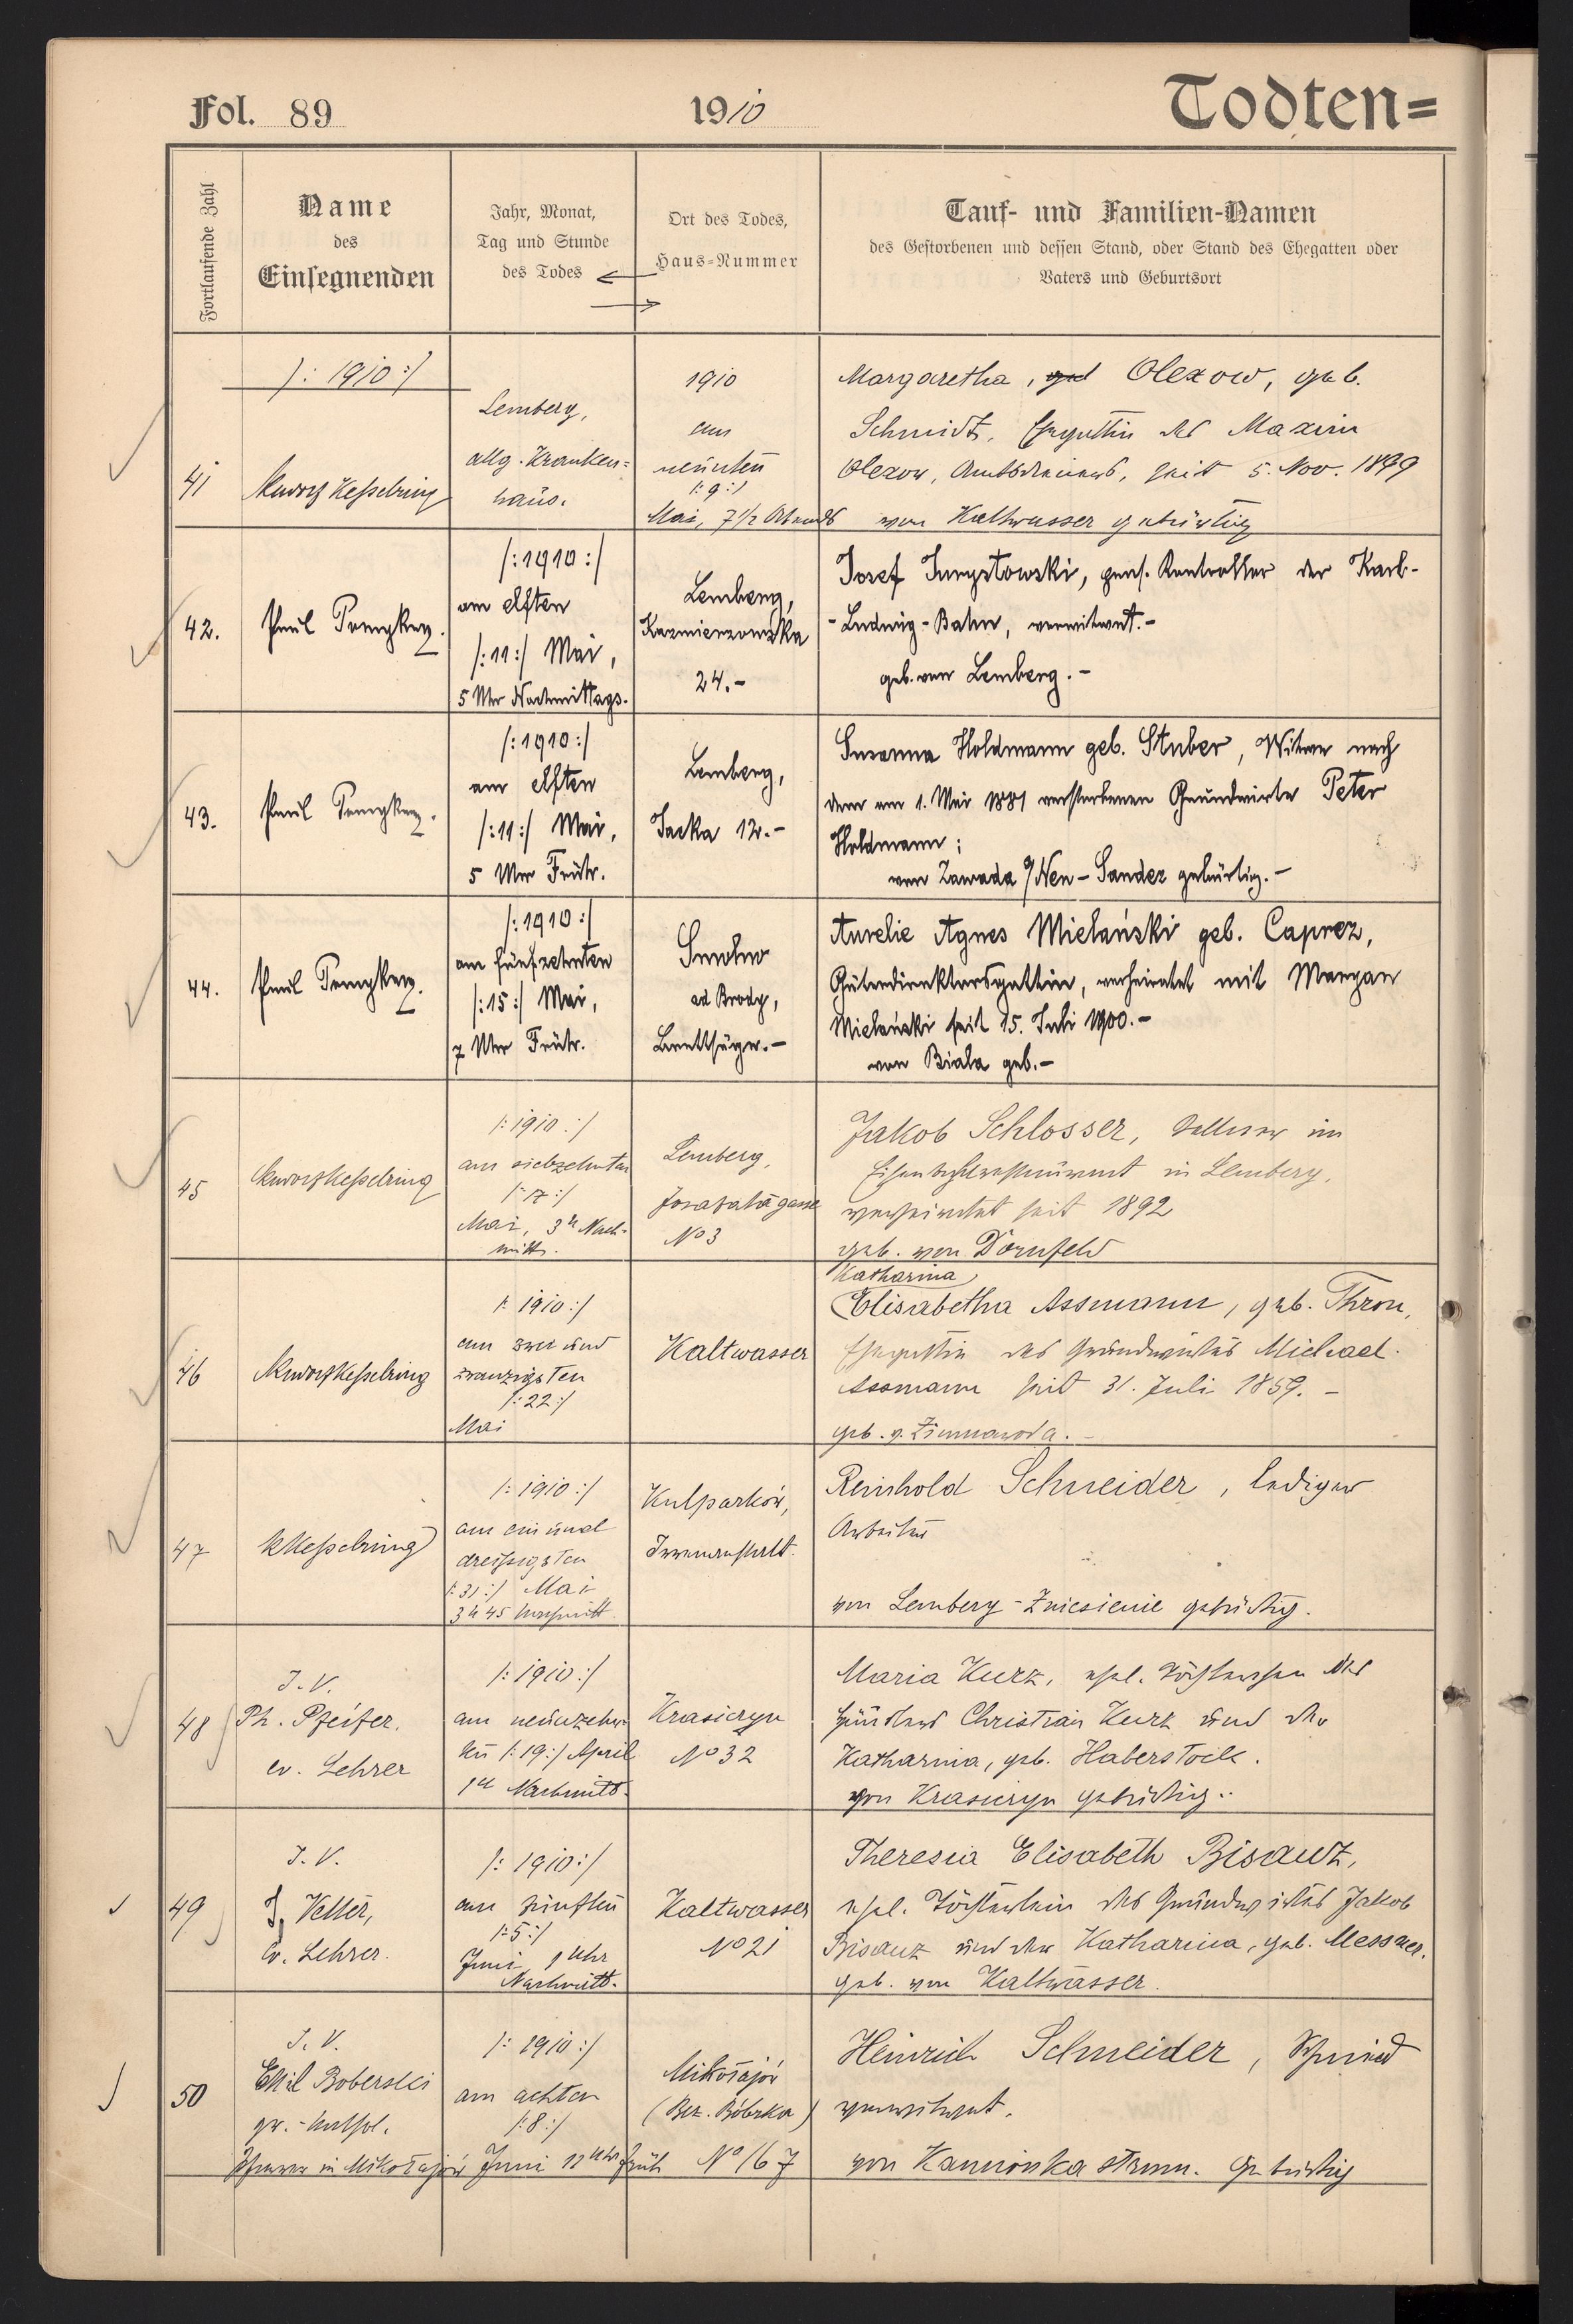 Fol. 89
1910
Todten=
Fortlaufende Zahl
Name
des
Einsegnenden
Jahr, Monat,
Tag und Stunde
des Todes
Ort des Todes,
Haus=Nummer
Tauf- und Familien-Namen
des Gestorbenen und dessen Stand, oder Stand des Ehegatten oder
Vaters und Geburtsort
/: 1910 :/
41
Kesselring
Lemberg,
allg. Kranken=
haus.
1910
am
neunten
/: 9 :/
Mai, 7 1/2 Abends
Margaretha, Olexow, geb.
Schmidt, Ehegattin des Maxim
Olexow, Amtsdieners, seit 5. Nov. 1899
von Kaltwasser gebürtig
42.
Paul
/: 1910 :/
am elften
/: 11 :/ Mai,
5 Uhr Nachmittags.
Lemberg,
Kazmierzowska
24.-
Josef Jurystowski, pens. Kontrollor der Karl-
-Ludwig-Bahn, verwitwet.-
geb. von Lemberg.-
43.
Paul
/: 1910 :/
am elften
/: 11 :/ Mai,
5 Uhr Früh.
Lemberg,
Jacka 12.-
Susanna Holdmann geb. Stuber, Witwe nach
dem am 1. Mai 1881 verstorbenen Grundwirte Peter
Holdmann;
von Zawada /Neu-Sandez gebürtig.-
44.
Paul
/: 1910 :/
am fünfzehnten
/: 15 :/ Mai,
7 Uhr Früh.
Smolno
ad Brody,
Brettsäge.-
Aurelie Agnes Mielański geb. Caprez,
Güterdirektorsgattin, verheiratet mit Maryan
Mielański seit 15. Juli 1900.-
von Biala geb.-
45
Kesselring
/: 1910 :/
am siebzehnten
/: 17 :/
Mai, 3 h Nach-
mitt.
Lemberg,
Josafatagasse
No 3
Jakob Schlosser, im
in Lemberg,
verheiratet seit 1892
geb. von Dornfeld
46
Kesselring
/: 1910 :/
am zwei und
zwanzigsten
/: 22 :/
Mai
Kaltwasser
Katharina
(Elisabetha Assmann, geb. Thron,
Ehegattin des Grundwirtes Michael
Assmann seit 31. Juli 1859. -
geb. v. Zimnawoda. -
47
Kesselring
/: 1910 :/
am ein und
dreissigsten
/: 31 :/ Mai
3 h 45 Nachmitt.
Kulparków,
Irrenanstalt.
Reinhold Schneider, lediger
Arbeiter
von Lemberg-Zniesienie gebürtig.
48
I. V.
Ph. Pfeifer,
ev. Lehrer
/: 1910 :/
am neunzehn-
ten /: 19 :/ April
1 h Nachmitt.
Krasiczyn
No 32
Maria Kurz, ehel. Töchterchen des
Christian Kurz und der
Katharina, geb. Haberstock.
von Krasiczyn gebürtig..
49
I. V.
J. Vetter,
ev. Lehrer.
/: 1910 :/
am fünften
/: 5 :/
Juni, 1 Uhr
Nachmitt.
Kaltwasser
No 21
Theresia Elisabeth Bisanz,
ehel. Töchterlein des Grundwirtes Jakob
Bisanz und der Katharina, geb. Messner.
geb. von Kaltwasser.
50
I. V.
Emil Boberski
gr.-kathol.
Pfarrer in Mikołajów
/: 1910 :/
am achten
/: 8 :/
Juni 12 Uhr früh
Mikołajów
(Bez. Bóbrka)
No 167
Heinrich Schneider, Schmied
verwitwet.
von Kamionka strum. gebürtig